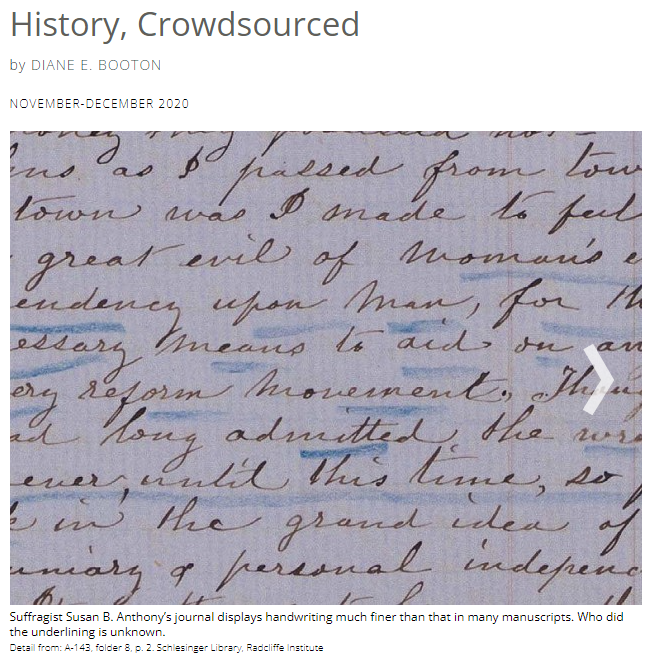 History, Crowdsourced
by DIANE E. BOOTON
NOVEMBER-DECEMBER 2020
as I passed from tow
town was I made to feel
great evil of woman's
endency upon man, for th
essary means to aid on an
ery reform movement. Thoug
ad long admitted the wro
ever, until this time, so
in the grand idea of
uniary & personal independ
Suffragist Susan B. Anthony's journal displays handwriting much finer than that in many manuscripts. Who did
the underlining is unknown.
Detail from: A-143, folder 8, p. 2. Schlesinger Library, Radcliffe Institute